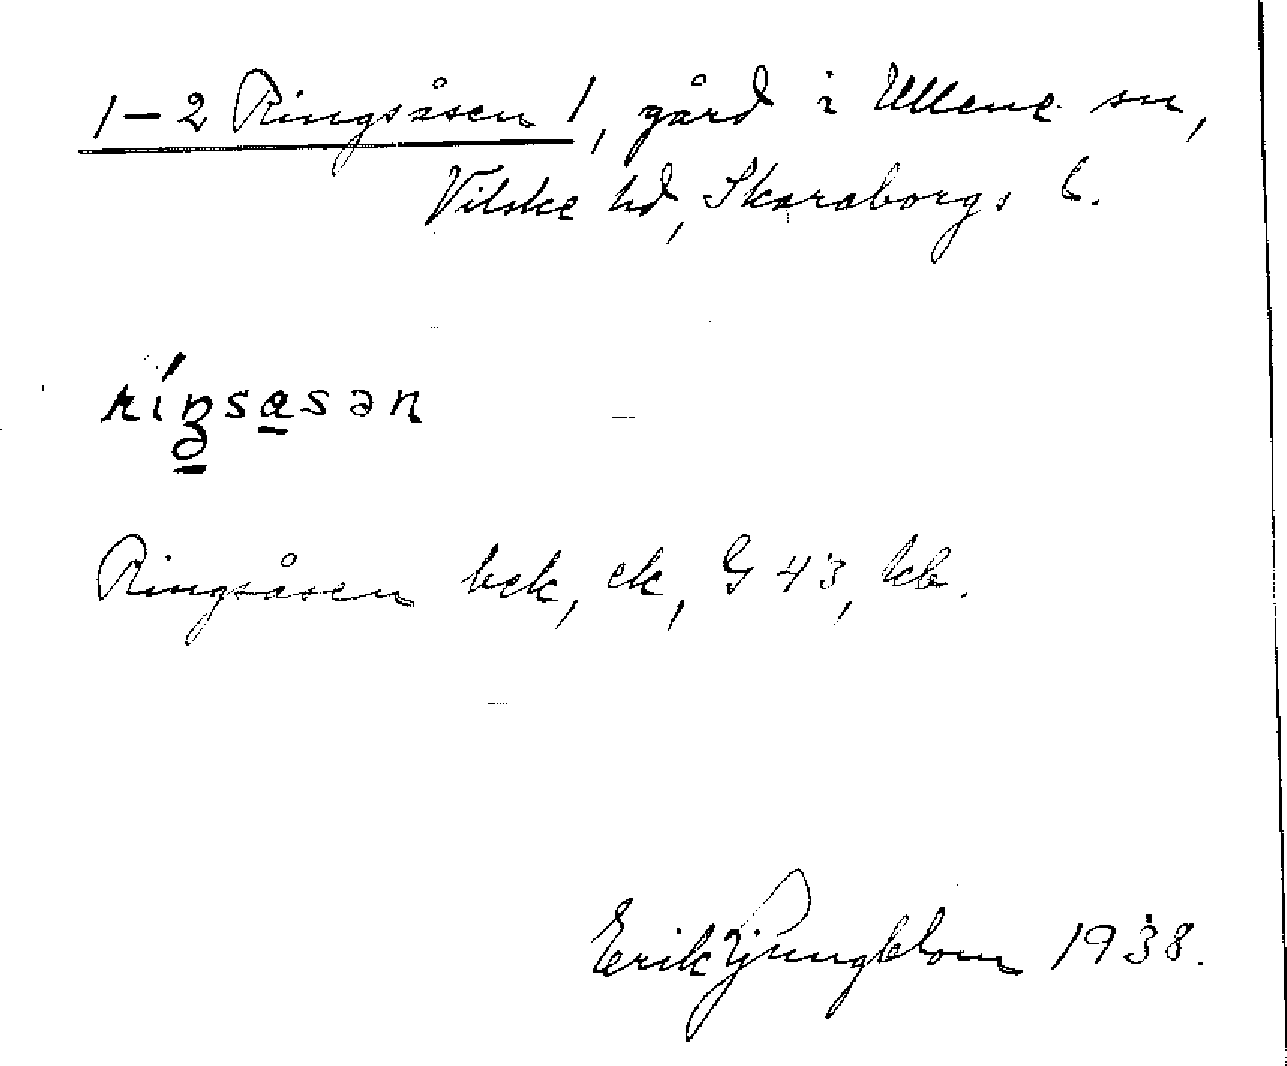 1-2 Ringsåsen 1, gård i Ullene sn,
Vilske hd, Skaraborgs l.
Ringsåsen hek, ek, G 43, kb.
Erik Ljungblom 1938.